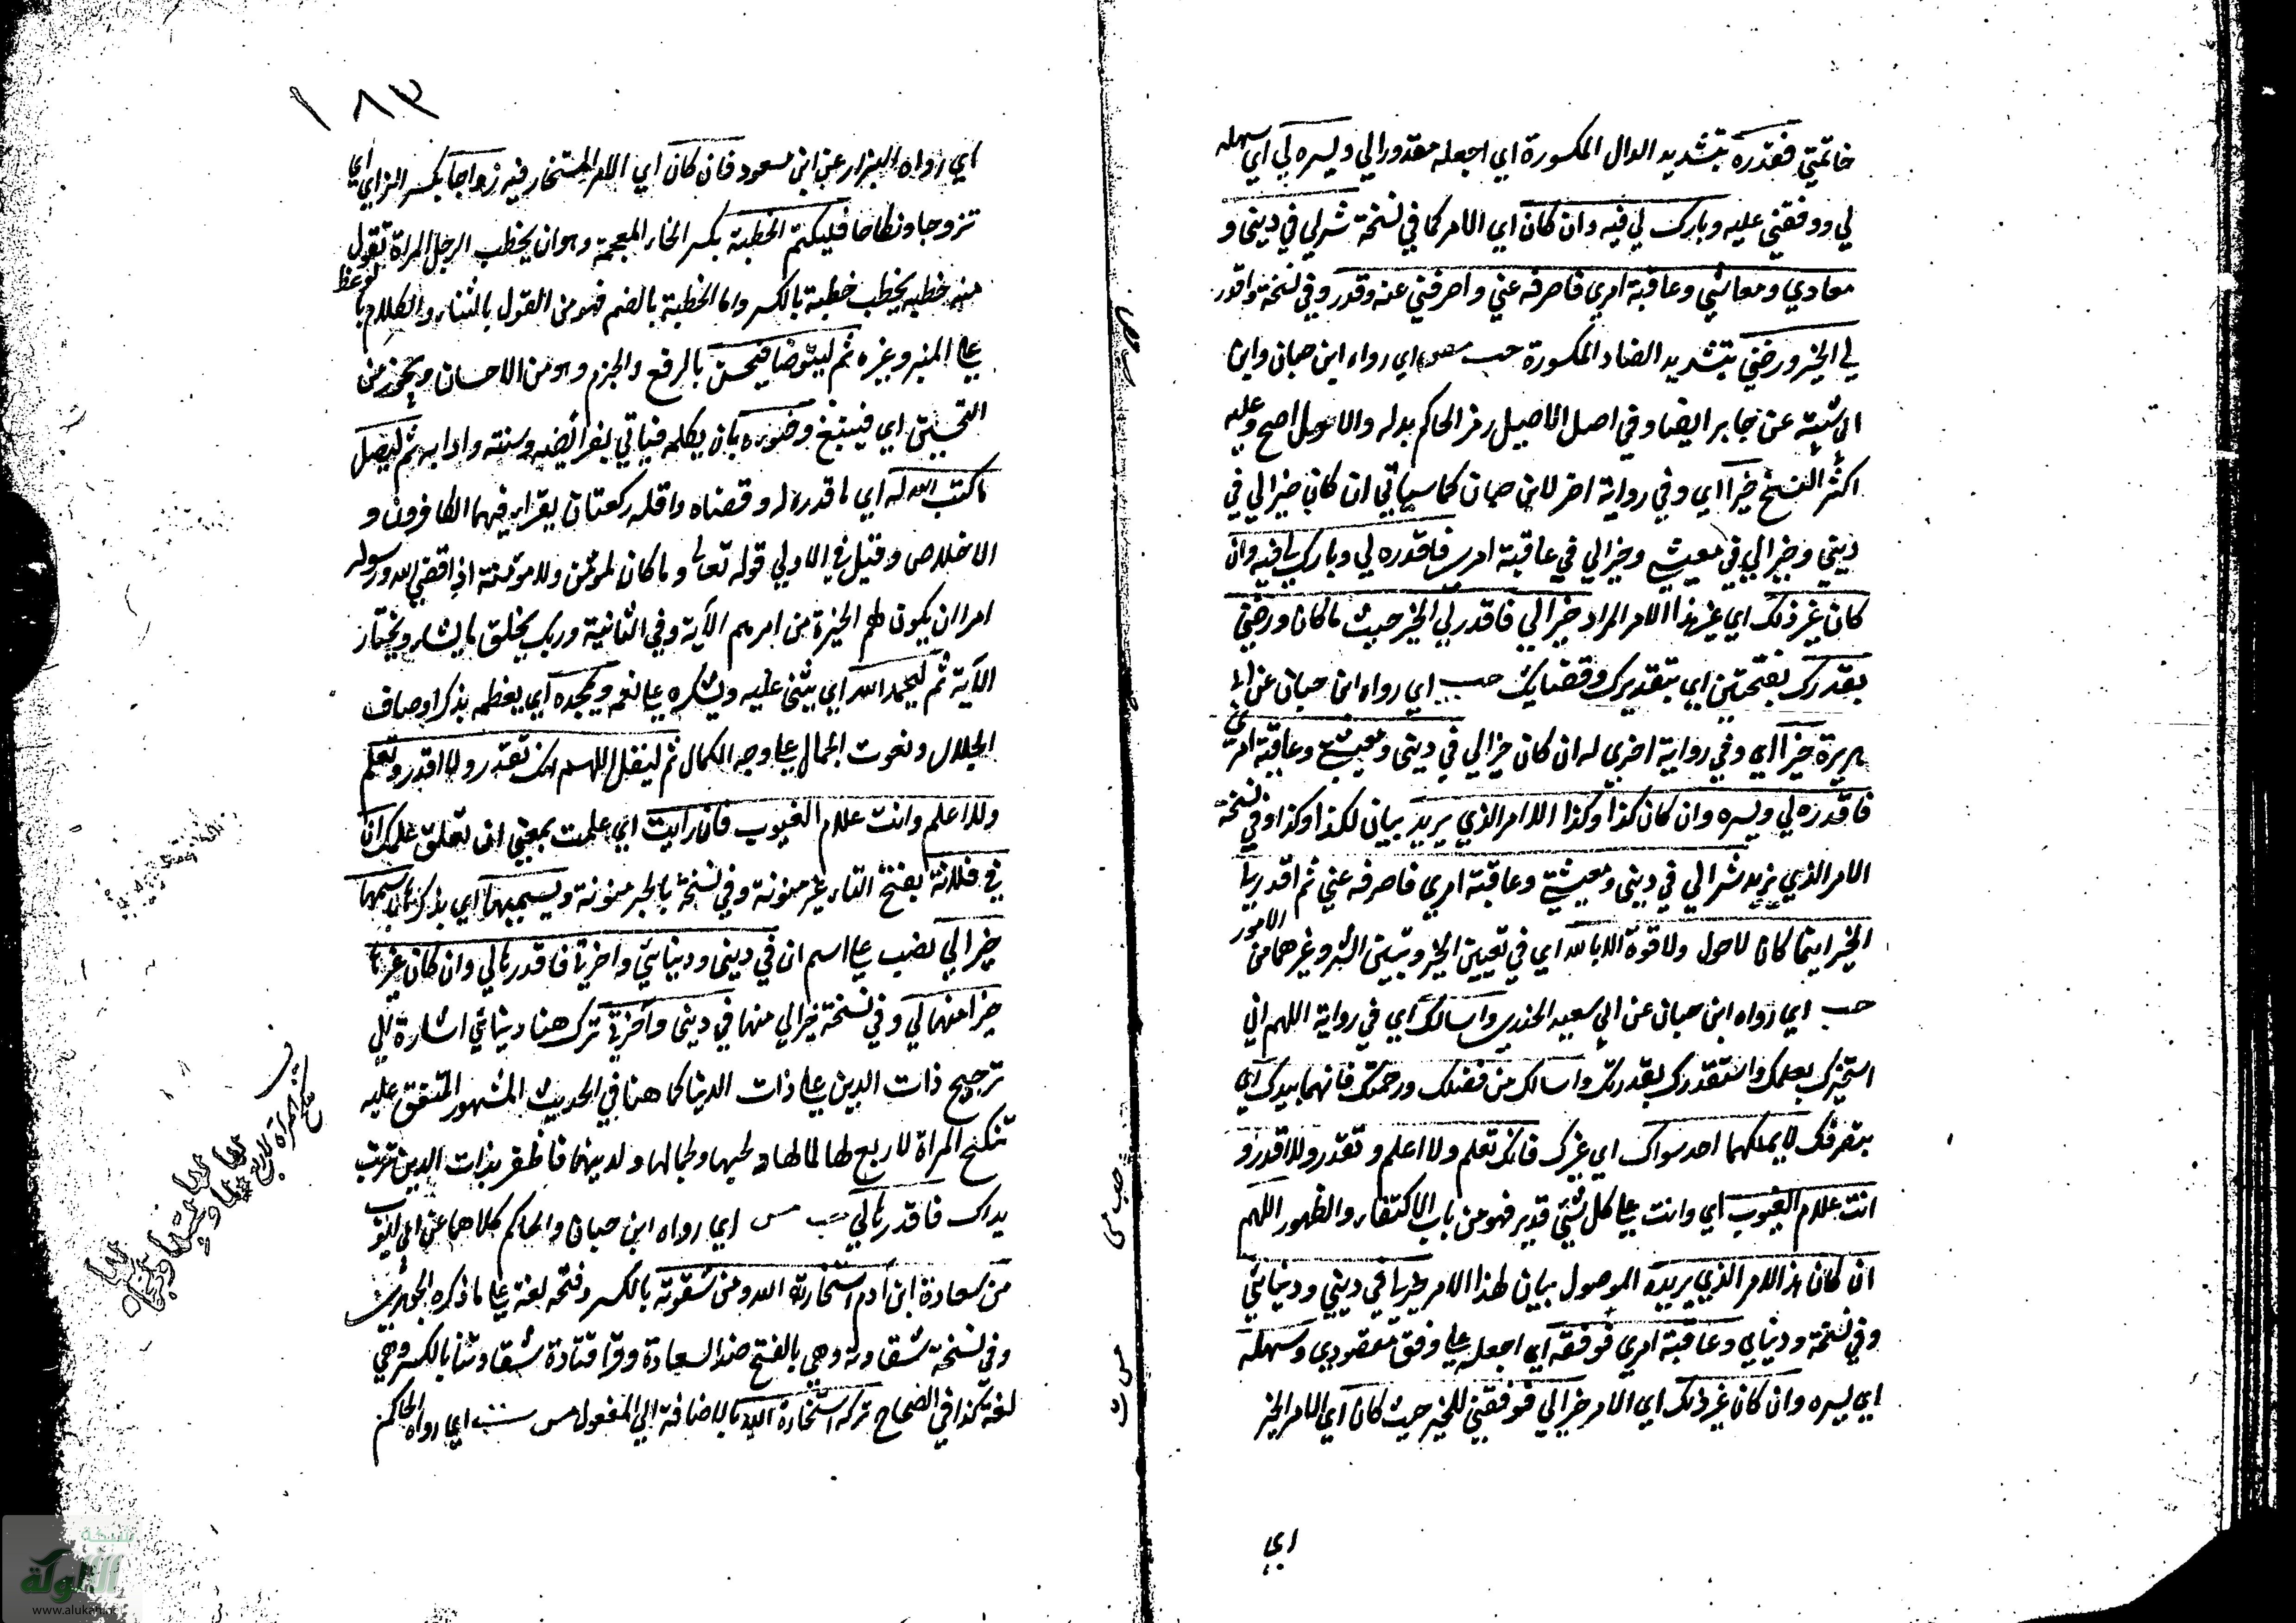 خاتمتي فقدره بتشديد الدال المكسورة اي اجعله مقدورا لي ويسره لي اي سهله
لي ووفقني عليه وبارك لي فيه وان كان اي الامر كما في نسخة شر لي في ديني و
معادي ومعاشي وعاقبة امري فاصرفه عني واصرفني عنه وقدر وفي نسخة واقدر
لي الخير ورضني بتشديد الضاد المكسورة حب مص اي رواه ابن حبان وابن
ابي شيبة عن جابر ايضا وفي اصل الاصيل رمز الحاكم بدله والاول اصح وعليه
اكثر النسخ خيرا اي وفي رواية اخر لابن حبان كما سياتي ان كان خيرا لي في
ديني وخيرا لي في معيشتي وخيرا لي في عاقبة امري فاقدره لي وبارك لي فيه وان
كان غير ذلك اي غير هذا الامر المراد خيرا لي فاقدر لي الخير حيث ما كان ورضني
بقدرك بفتحتين اي بتقديرك وقضايك حب اي رواه ابن حبان عن ابي
هريرة خيرا اي وفي رواية اخرى له ان كان خيرا لي في ديني ومعيشتي وعاقبة امري
فاقدره لي ويسره وان كان كذا وكذا اللامر الذي يريد بيان لكذا وكذا وفي نسخة
الامر الذي يريد شرا لي في ديني ومعيشتي وعاقبة امري فاصرفه عني ثم اقدر لي
الخير اينما كان لا حول ولا قوة الا بالله اي في تعيين الخير وتبيين الشر وغيرهما من الامور
حب اي رواه ابن حبان عن ابي سعيد الخدري واسالك اي في رواية اللهم اني
استخيرك بعلمك واستقدرك بقدرتك واسالك من فضلك ورحمتك فانهما بيدك اي
بتصرفك لا يملكهما احد سواك اي غيرك فانك تعلم ولا اعلم وتقدر ولا اقدر و
انت علام الغيوب اي وانت على كل شيء قدير فهو من باب الاكتفاء والظهور اللهم
ان كان هذا الامر الذي يريده الموصول بيان لهذا الامر خيرا في ديني ودنيائي
وفي نسخة ودنياي وعاقبة امري فوفقه اي اجعله على وفق مقصودي وسهله
اي يسره وان كان غير ذلك اي الامر خيرا لي فوفقني للخير حيث كان اي الامر الخير
اي
١٨٣
اي رواه البزار عن ابن مسعود فان كان اي الامر المستخار فيه زواجا بكسر الزاي اي
تزوجا ونكاحا فليكتم الخطبة بكسر الخاء المعجمة وهو ان يخطب الرجل المراة تقول
منه خطبه يخطب خطبة بالكسر واما الخطبة بالضم فهو من القول بالثناء والكلام بالوعظ
على المنبر وغيره ثم ليتوضا فيحسن بالرفع والجزم وهو من الاحسان ويجوز من
التحسين اي فيسبغ وضوءه بان يكمله فياتي بفرائضه وسنته وادابه ثم ليصل
ما كتب الله له اي ما قدره له وقضاه واقله ركعتان يقراء فيهما الكافرون و
الاخلاص وقيل في الاولي قوله تعالى وما كان لمؤمن ولا مؤمنة اذا قضى الله ورسوله
امرا ان يكون لهم الخيرة من امرهم الآية وفي الثانية وربك يخلق ما يشاء ويختار
الآية ثم ليحمد الله اي يثني عليه ويشكره على نعمه ويمجده اي يعظمه بذكر اوصاف
الجلال ونعوت الجمال على وجه الكمال ثم ليقل اللهم انك تقدر ولا اقدر وتعلم
ولا اعلم وانت علام الغيوب فان رايت اي علمت بمعنى ان تعلق علمك ان
في فلانة بفتح التاء غير منونة وفي نسخة بالجر منونة ويسميها اي يذكرها باسمها
خيرا لي نصب على اسم ان في ديني ودنيائي واخرتي فاقدرها لي وان كان غيرها
خيرا منها لي وفي نسخة خيرا لي منها في ديني وآخرتي ترك هنا دنيائي اشارة الي
ترجيح ذات الدين على ذات الدنيا كما هنا في الحديث المشهور المتفق عليه
تنكح المراة لاربع لمالها ولحسبها ولجمالها ولدينها فاظفر بذات الدين تربت
يداك فاقدرها لي حب مس اي رواه ابن حبان والحاكم كلاهما عن ابي ايوب
من سعادة ابن آدم استخارته الله ومن شقوته بالكسر وفتحه لغة على ما ذكره الجوهري
وفي نسخة شقاوته وهي بالفتح ضد السعادة وقرا قتادة شقاوتنا بالكسر وهي
لغة كذا في الصحاح تركه استخارة الله بالاضافة الي المفعول مس ت اي رواه الحاكم
تنكح المراة لاربع
شبكة
الألوكة
www.alukah.net